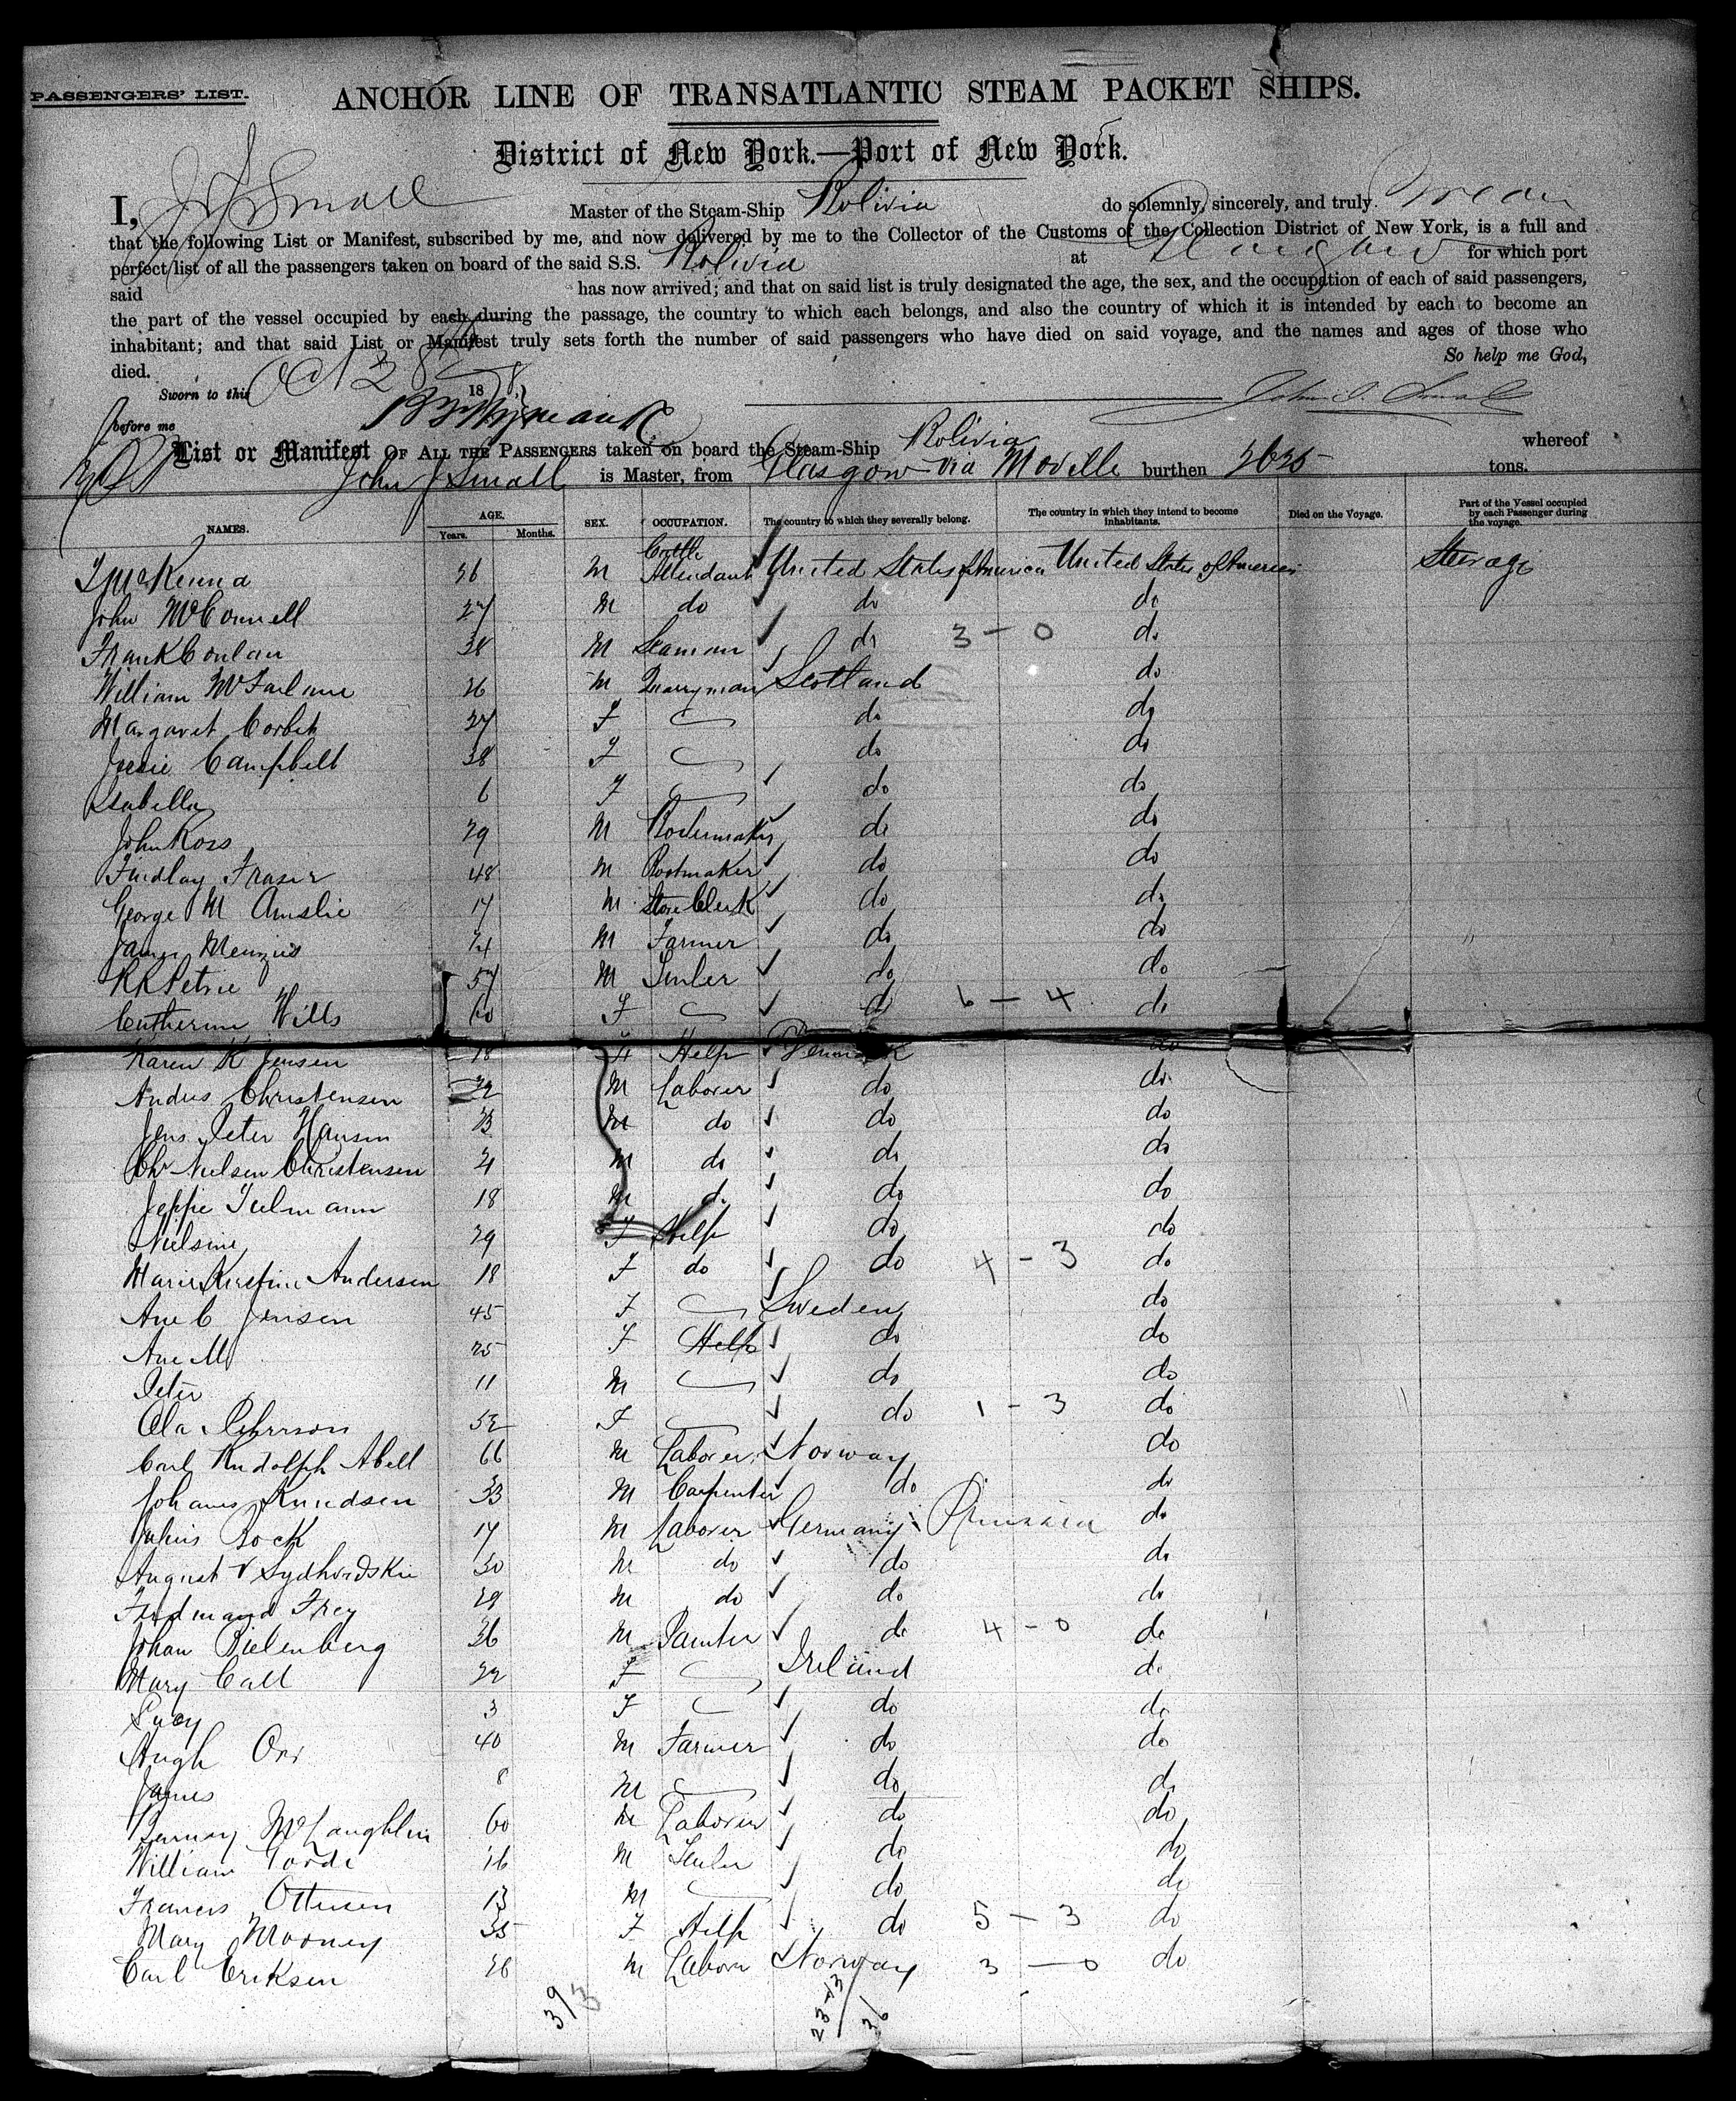 PASSENGERS' LIST.
ANCHOR LINE OF TRANSATLANTIC STEAM PACKET SHIPS.
District of New York.—Port of New York.
I, J J Small Master of the Steam-Ship Bolivia do solemnly, sincerely, and truly Swear
that the following List or Manifest, subscribed by me, and now delivered by me to the Collector of the Customs of the Collection District of New York, is a full and
perfect list of all the passengers taken on board of the said S.S. Bolivia at Glasgow for which port
said has now arrived; and that on said list is truly designated the age, the sex, and the occupation of each of said passengers,
the part of the vessel occupied by each during the passage, the country to which each belongs, and also the country of which it is intended by each to become an
inhabitant; and that said List or Manifest truly sets forth the number of said passengers who have died on said voyage, and the names and ages of those who
died. So help me God,
Sworn to this Oct 18
before me John J. Small
List or Manifest OF ALL THE PASSENGERS taken on board the Steam-Ship Bolivia whereof
John J Small is Master, from Glasgow via Moville burthen 2625 tons.
NAMES. AGE. Years. Months. SEX. OCCUPATION. The country to which they severally belong. The country in which they intend to become inhabitants. Died on the Voyage. Part of the Vessel occupied by each Passenger during the voyage.
McKenna 36 M Cattle Attendant United States of America United States of America Steerage
John McConnell 27 M do do do
Frank Conlan 38 M Seaman do 3 - 0 do
William McFarlane 26 M Quarryman Scotland do
Margaret Corbet 27 F do do
Jessie Campbell 38 F do do
Isabella 6 F do do
John Ross 29 M Boilermaker do do
Findlay Fraser 48 M Bootmaker do do
George M Ainslie 17 M Store Clerk do do
James Menzies 24 M Farmer do do
R R Petrie 57 M do do
Catherine Wills 60 F do 6 - 4 do
Karen K Jensen 18 F Help Denmark do
Andres Christensen 22 M Laborer do do
Jens Peter Hansen 23 M do do do
Chr Nielsen Christensen 21 M do do do
Jeppe 18 M do do do
Nielsine 29 F Help do do
Marie Kirstine Andersen 18 F do do 4 - 3 do
Ane C Jensen 45 F Sweden do
Ane M 25 F Help do do
Peter 11 M do do
Ola Pehrson 52 F do 1 - 3 do
Carl Rudolph Abell 66 M Laborer Norway do
Johannes Knudsen 33 M Carpenter do do
Julius Bock 17 M Laborer Germany Prussia do
August v 30 M do do do
Ferdinand Frey 29 M do do do
Johan Bielenberg 36 M Painter do 4 - 0 do
Mary Call 22 F Ireland do
Lucy 3 F do do
Hugh Orr 40 M Farmer do do
James 8 M do do
Barney McLaughlin 60 M Laborer do do
William 16 M do do
Francis Ottesen 13 M do do
Mary Mooney 35 F Help do 5 - 3 do
Carl Eriksen 26 M Labore Norway 3 - 0 do
39/3 23-13/36